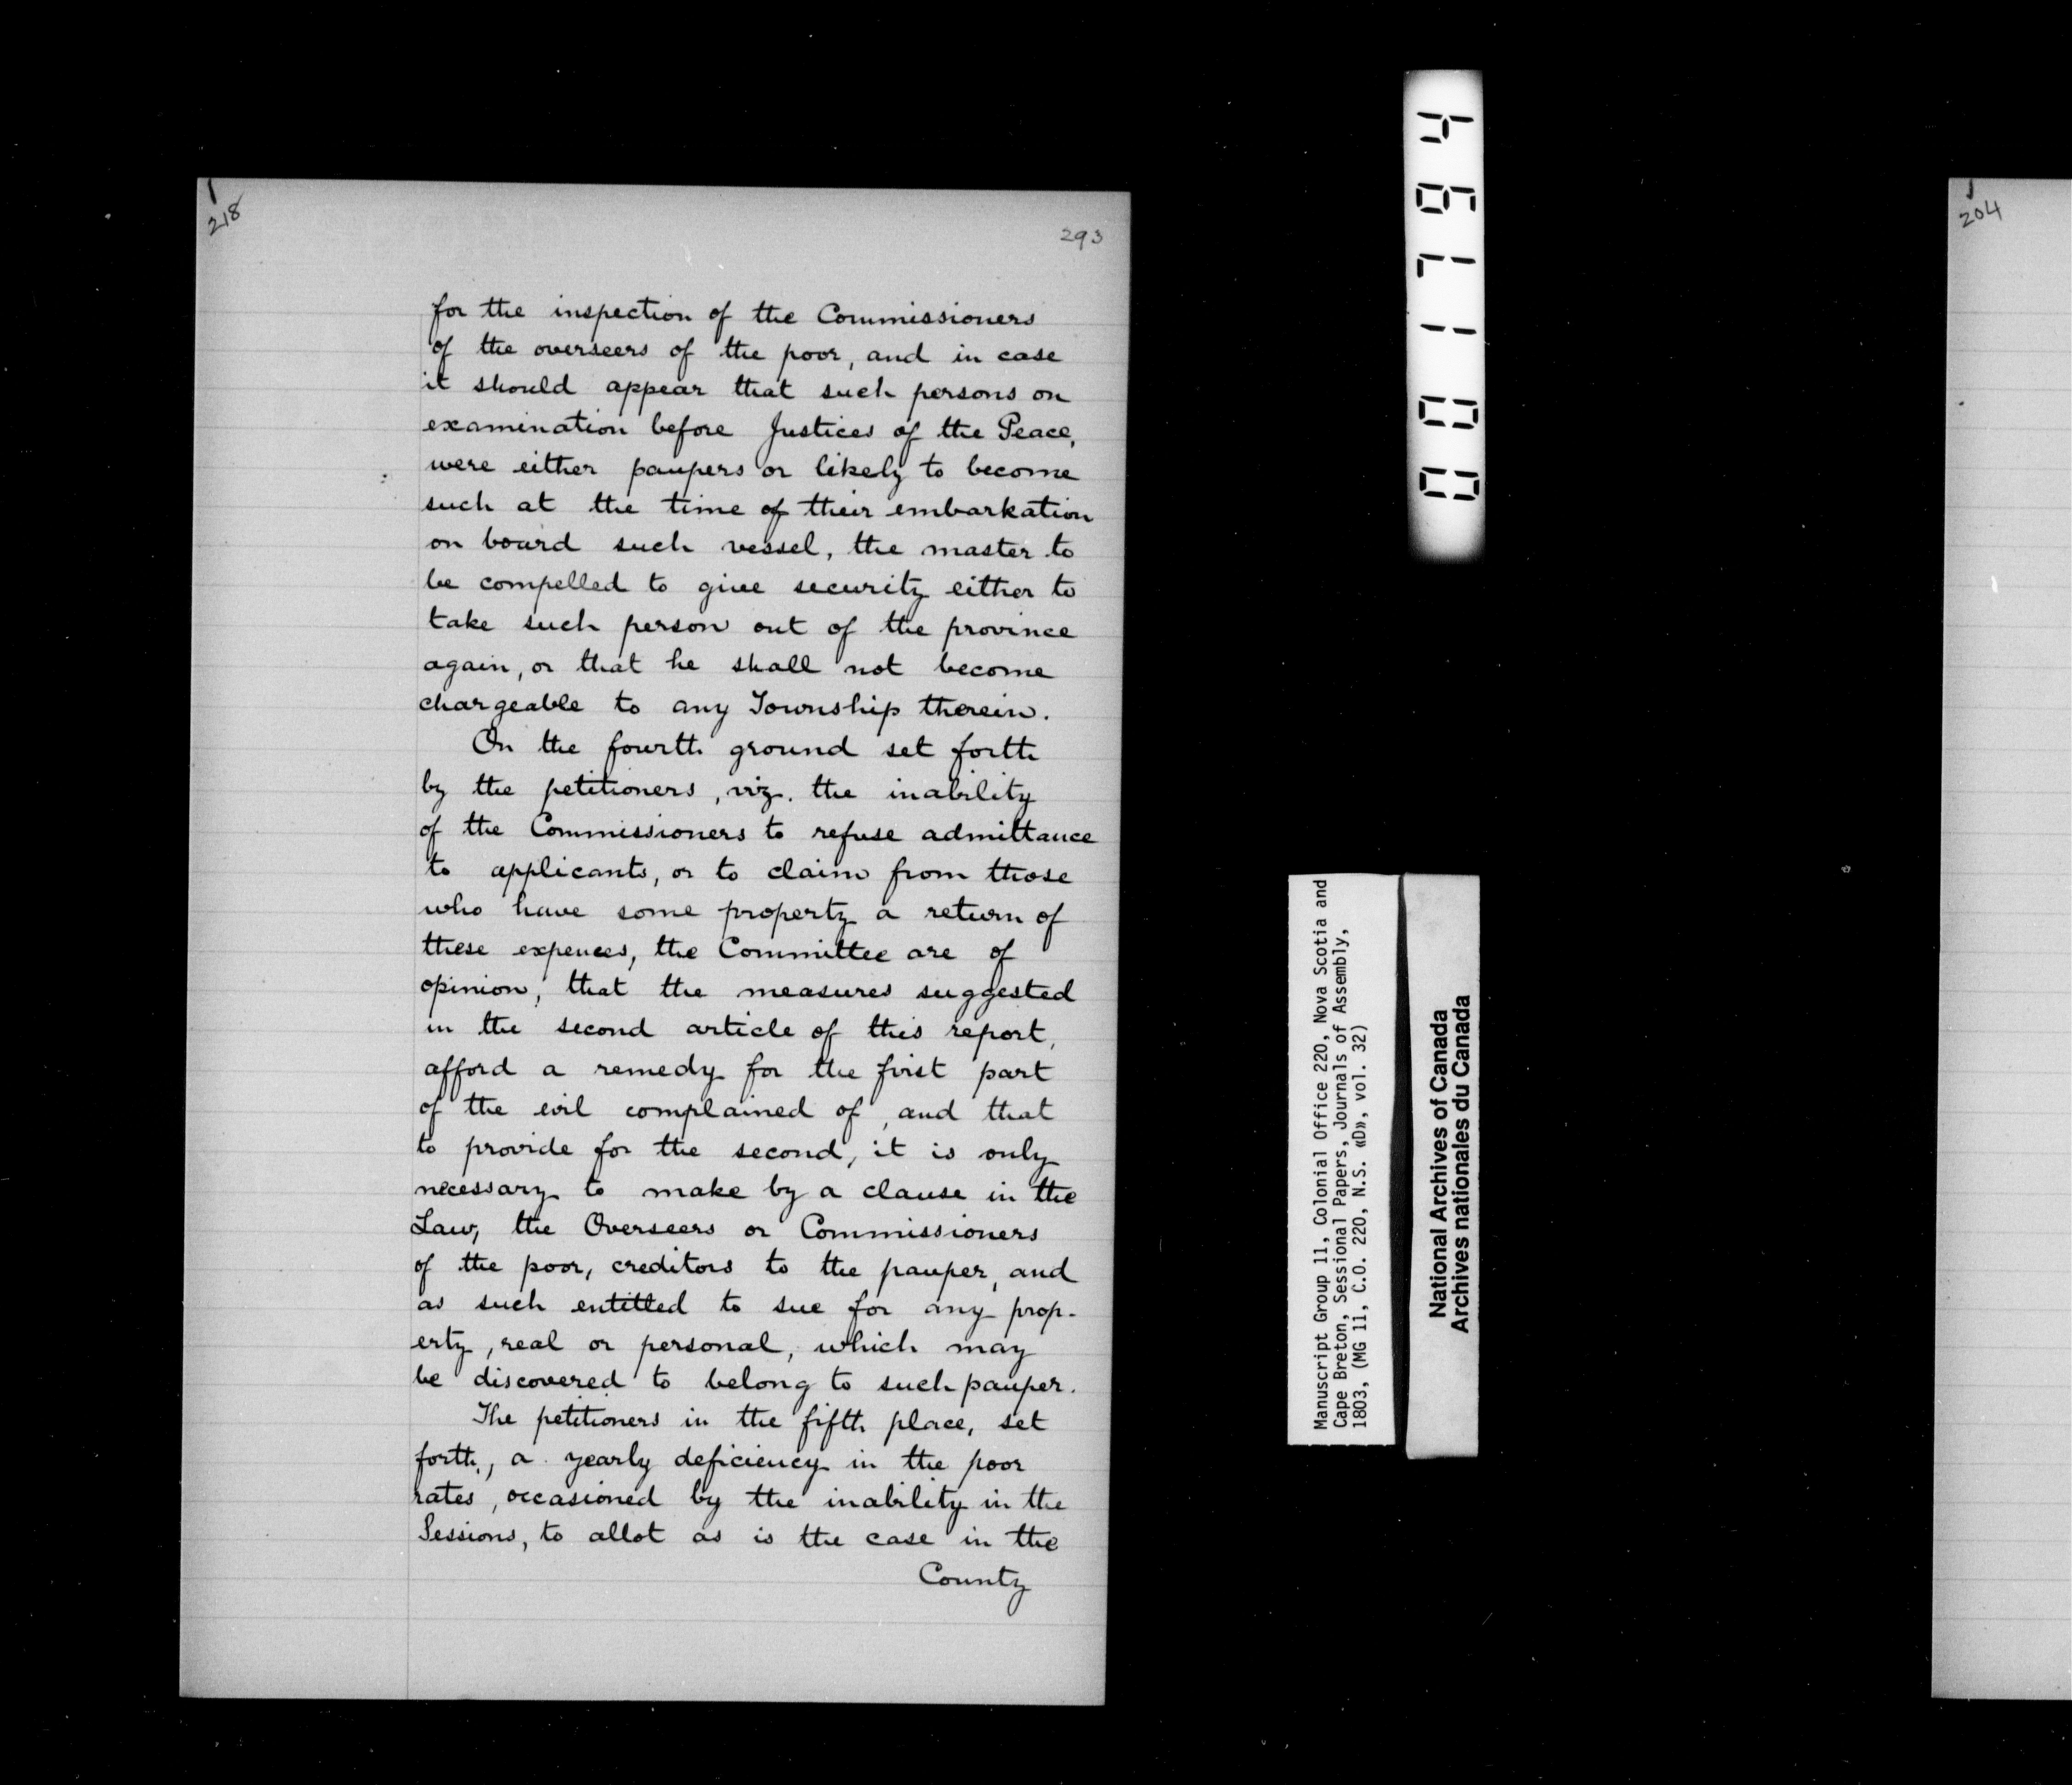 218
293
for the inspection of the Commissioners
of the overseers of the poor, and in case
it should appear that such persons on
examination before Justices of the Peace,
were either paupers or likely to become
such at the time of their embarkation
on board such vessel, the master to
be compelled to give security either to
take such person out of the province
again, or that he shall not become
chargeable to any Township therein.
On the fourth ground set forth
by the petitioners, viz. the inability
of the Commissioners to refuse admittance
to applicants, or to claim from those
who have some property a return of
these expences, the Committee are of
opinion, that the measures suggested
in the second article of this report,
afford a remedy for the first part
of the evil complained of, and that
to provide for the second, it is only
necessary to make by a clause in the
Law, the Overseers or Commissioners
of the poor, creditors to the pauper, and
as such entitled to sue for any prop-
erty, real or personal, which may
be discovered to belong to such pauper.
The petitioners in the fifth place, set
forth, a yearly deficiency in the poor
rates, occasioned by the inability in the
Sessions, to allot as is the case in the
County
001794
Manuscript Group 11, Colonial Office 220, Nova Scotia and
Cape Breton, Sessional Papers, Journals of Assembly,
1803, (MG 11, C.O. 220, N.S. «D», vol. 32)
National Archives of Canada
Archives nationales du Canada
204